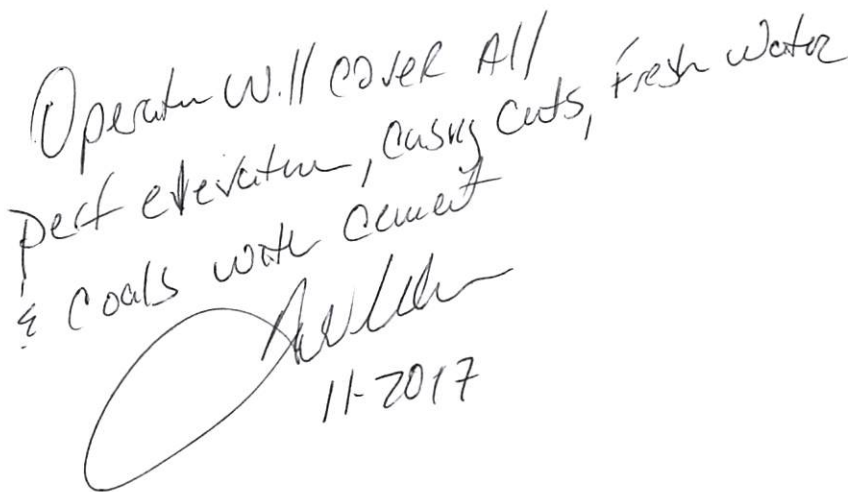 Operator Will cover All
perf elevation, casing cuts, Fresh Water
& Coals with Cement
11-2017